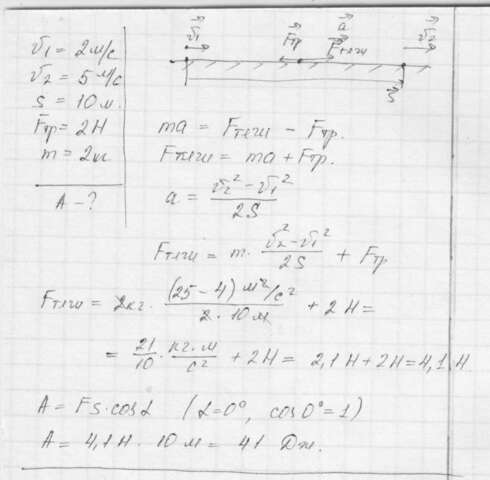 v⃗₁ F⃗тр a⃗ F⃗тяги v⃗₂
S⃗
v₁ = 2 м/с
v₂ = 5 м/с
s = 10 м.
Fтр = 2 Н
m = 2 кг
A - ?
ma = Fтяги - Fтр.
Fтяги = ma + Fтр.
a = (v₂² - v₁²)/2S
Fтяги = m · (v₂² - v₁²)/2S + Fтр
Fтяги = 2кг · ((25 - 4) м²/с²)/(2 · 10 м) + 2 Н =
= 21/10 · кг·м/с² + 2Н = 2,1 Н + 2Н = 4,1 Н
A = FS·cosα (α=0°, cos0°=1)
A = 4,1 Н · 10 м = 41 Дж.